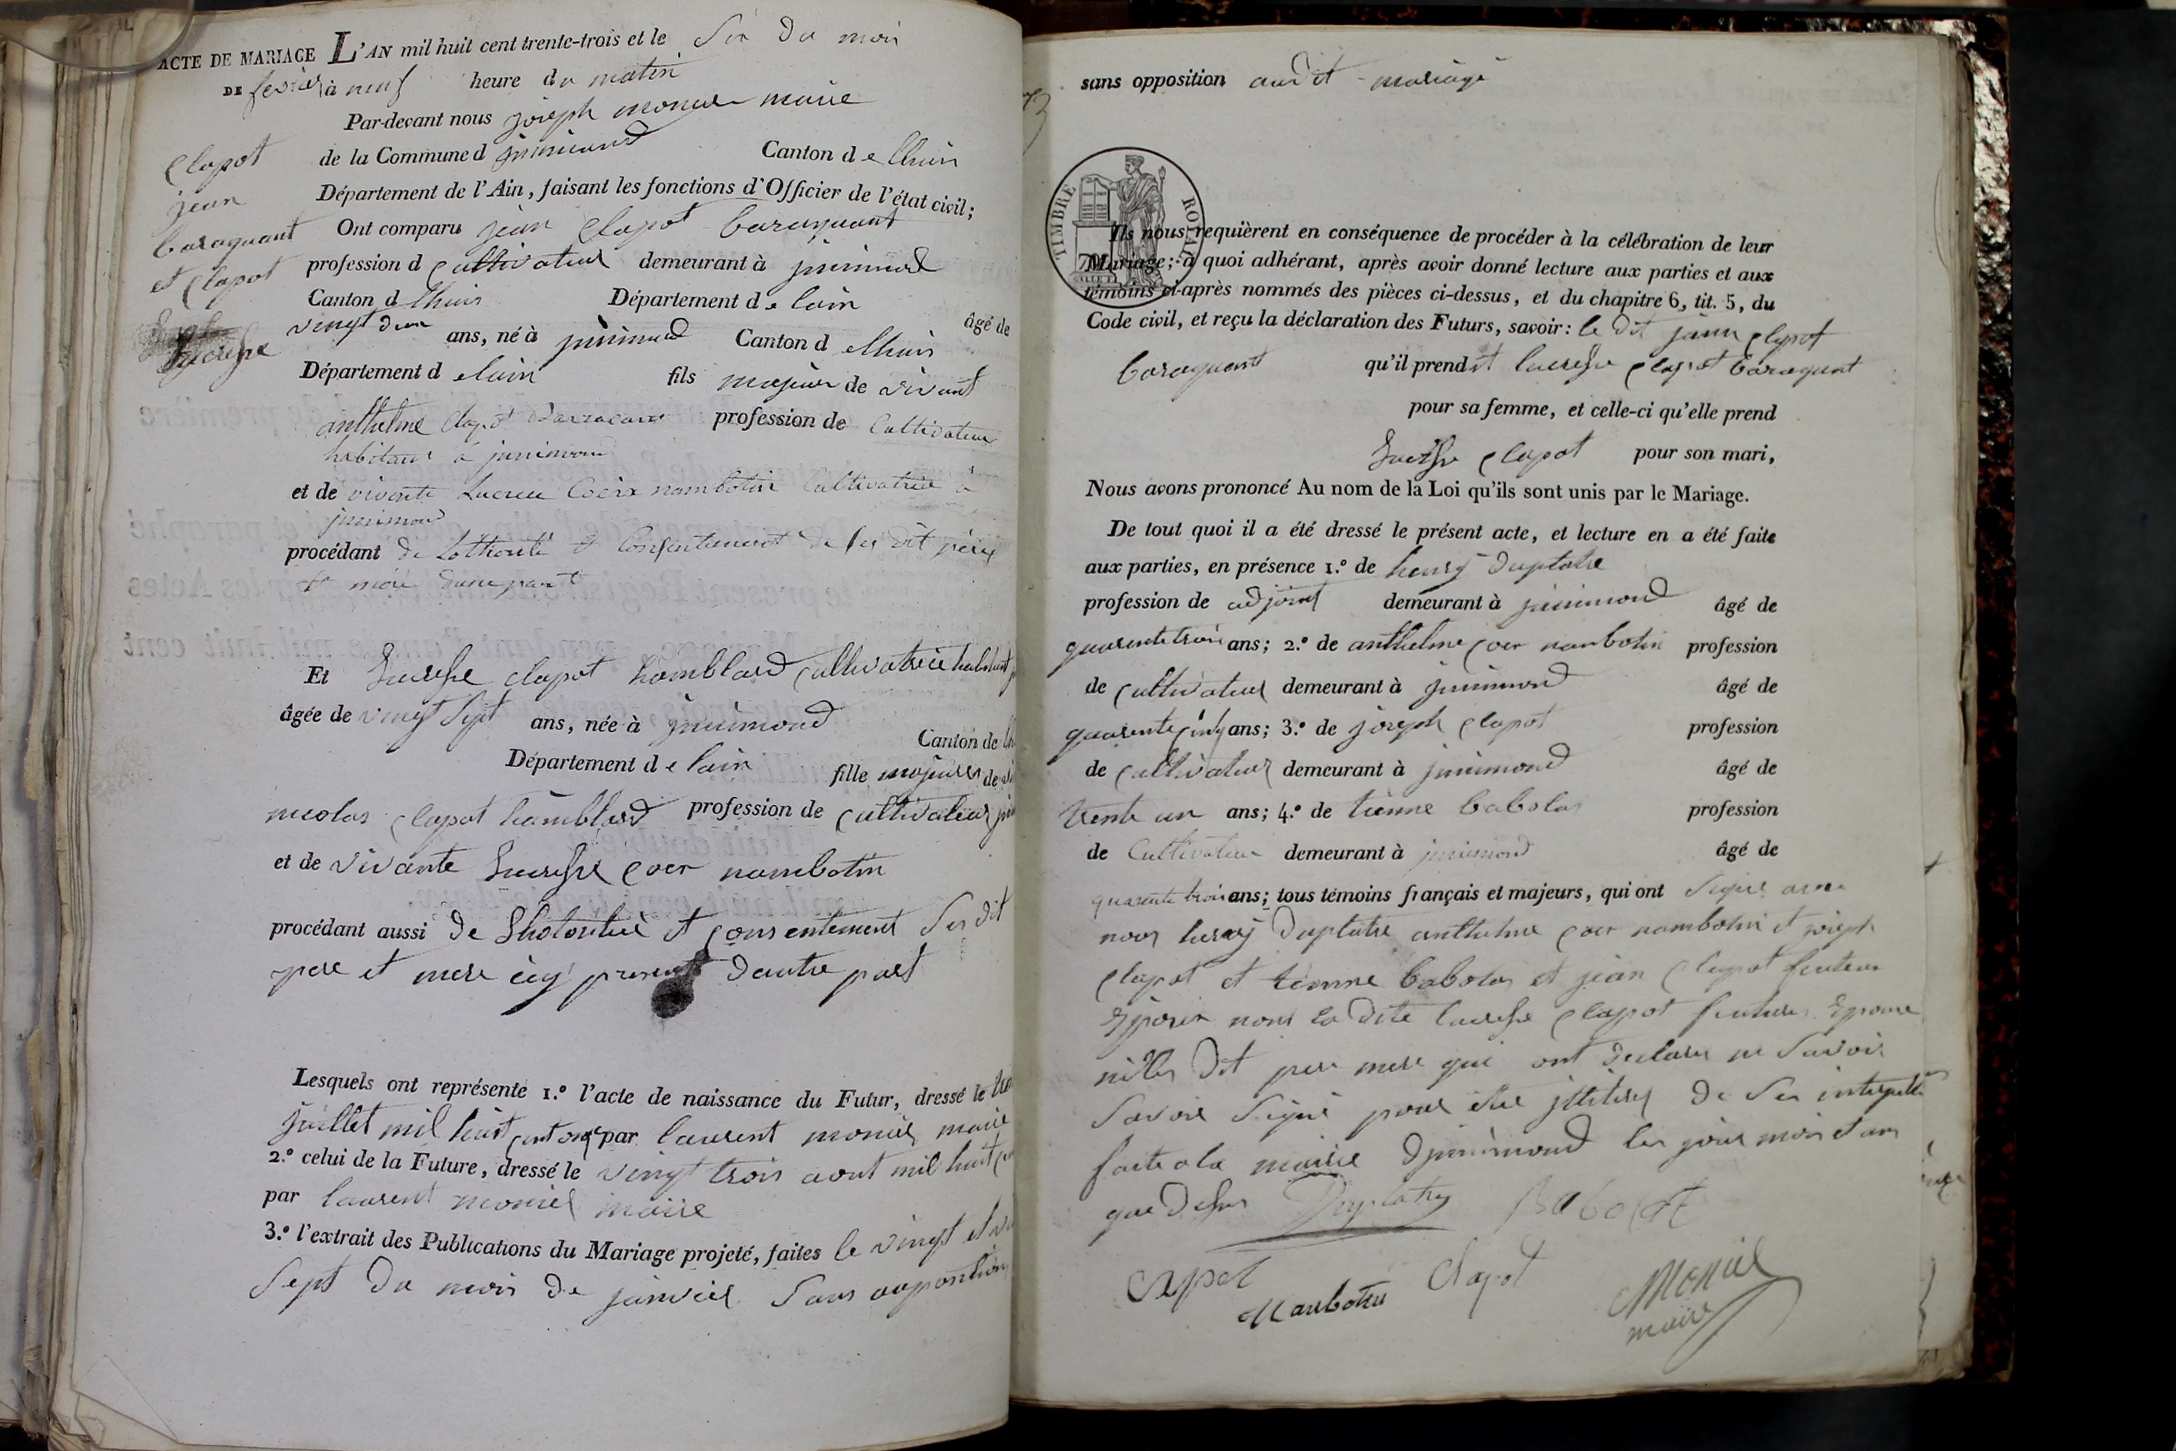 ACTE DE MARIAGE L'AN mil huit cent trente-trois et le Six du mois
DE fevrier à neuf heure du matin
Par-devant nous joseph monier maire
de la Commune d jnnimond Canton de lhuis
Département de l'Ain, faisant les fonctions d'Officier de l'état civil;
Clapot
jean
baraquant
et Clapot
Lucresse
Ont comparu jean Clapot baraquant
profession d cultivateur demeurant à jnnimond
Canton d lhuis Département de lain âgé de
vingt deux ans, né à jnnimond Canton d elhuis
Département d elain fils majeur de vivant
anthelme Clapot Barracant profession de Cultivateur
habitant à jnnimond
et de vivante Lucrece Coeur nambotin Cultivatrice à
jnnimond
procédant de Lothorité et Consentement de ses dit père
et mère dune part
Et Lucresse clapot hamblard cultivatrice habitant
âgée de vingt Sept ans, née à jnnimond
Canton de lh
Département de lain fille majeure de
nicolas clapot hamblard profession de cultivateur
et de vivante Lucresse coer nambotin
procédant aussi de Lhotorité et consentement Ses dit
pere et mere icy present dautre part
Lesquels ont représenté 1.º l'acte de naissance du Futur, dressé le
juillet mil huit cent onze par laurent monier maire
2.º celui de la Future, dressé le vingt trois aout mil huit
par laurent monier maire
3.º l'extrait des Publications du Mariage projeté, faites le vingt et
Sept du mois de janvier Sans aoposition
sans opposition audit mariage
TIMBRE ROYAL
Ils nous requièrent en conséquence de procéder à la célébration de leur
Mariage; à quoi adhérant, après avoir donné lecture aux parties et aux
témoins ci-après nommés des pièces ci-dessus, et du chapitre 6, tit. 5, du
Code civil, et reçu la déclaration des Futurs, savoir: le dit jean clapot
baraquant qu'il prend et lucresse clapot baraquant
pour sa femme, et celle-ci qu'elle prend
Lucresse clapot pour son mari,
Nous avons prononcé Au nom de la Loi qu'ils sont unis par le Mariage.
De tout quoi il a été dressé le présent acte, et lecture en a été faite
aux parties, en présence 1.º de henry Duplatre
profession de adjoint demeurant à jnnimond âgé de
quarente trois ans; 2.º de anthelme coer nambotin profession
de cultivateur demeurant à jnnimond âgé de
quarente cinq ans; 3.º de joseph clapot profession
de cultivateur demeurant à jnnimond âgé de
trente un ans; 4.º de tienne babolas profession
de Cultivateur demeurant à jnnimond âgé de
quarente trois ans; tous témoins français et majeurs, qui ont Signé avec
nous henry Duplatre anthelme coer nambotin et joseph
clapot et tienne babolas et jean clapot feuteur
Epoux nont la dite lucresse clapot future Epouse
dit pere mere qui ont declare ne Savoir
Savoir Signe pour de Ses
faite a la mairie djnnimond les jour mois et an
que Desus Duplatre Babolat
Clapot Nambotin Clapot Monier
maire